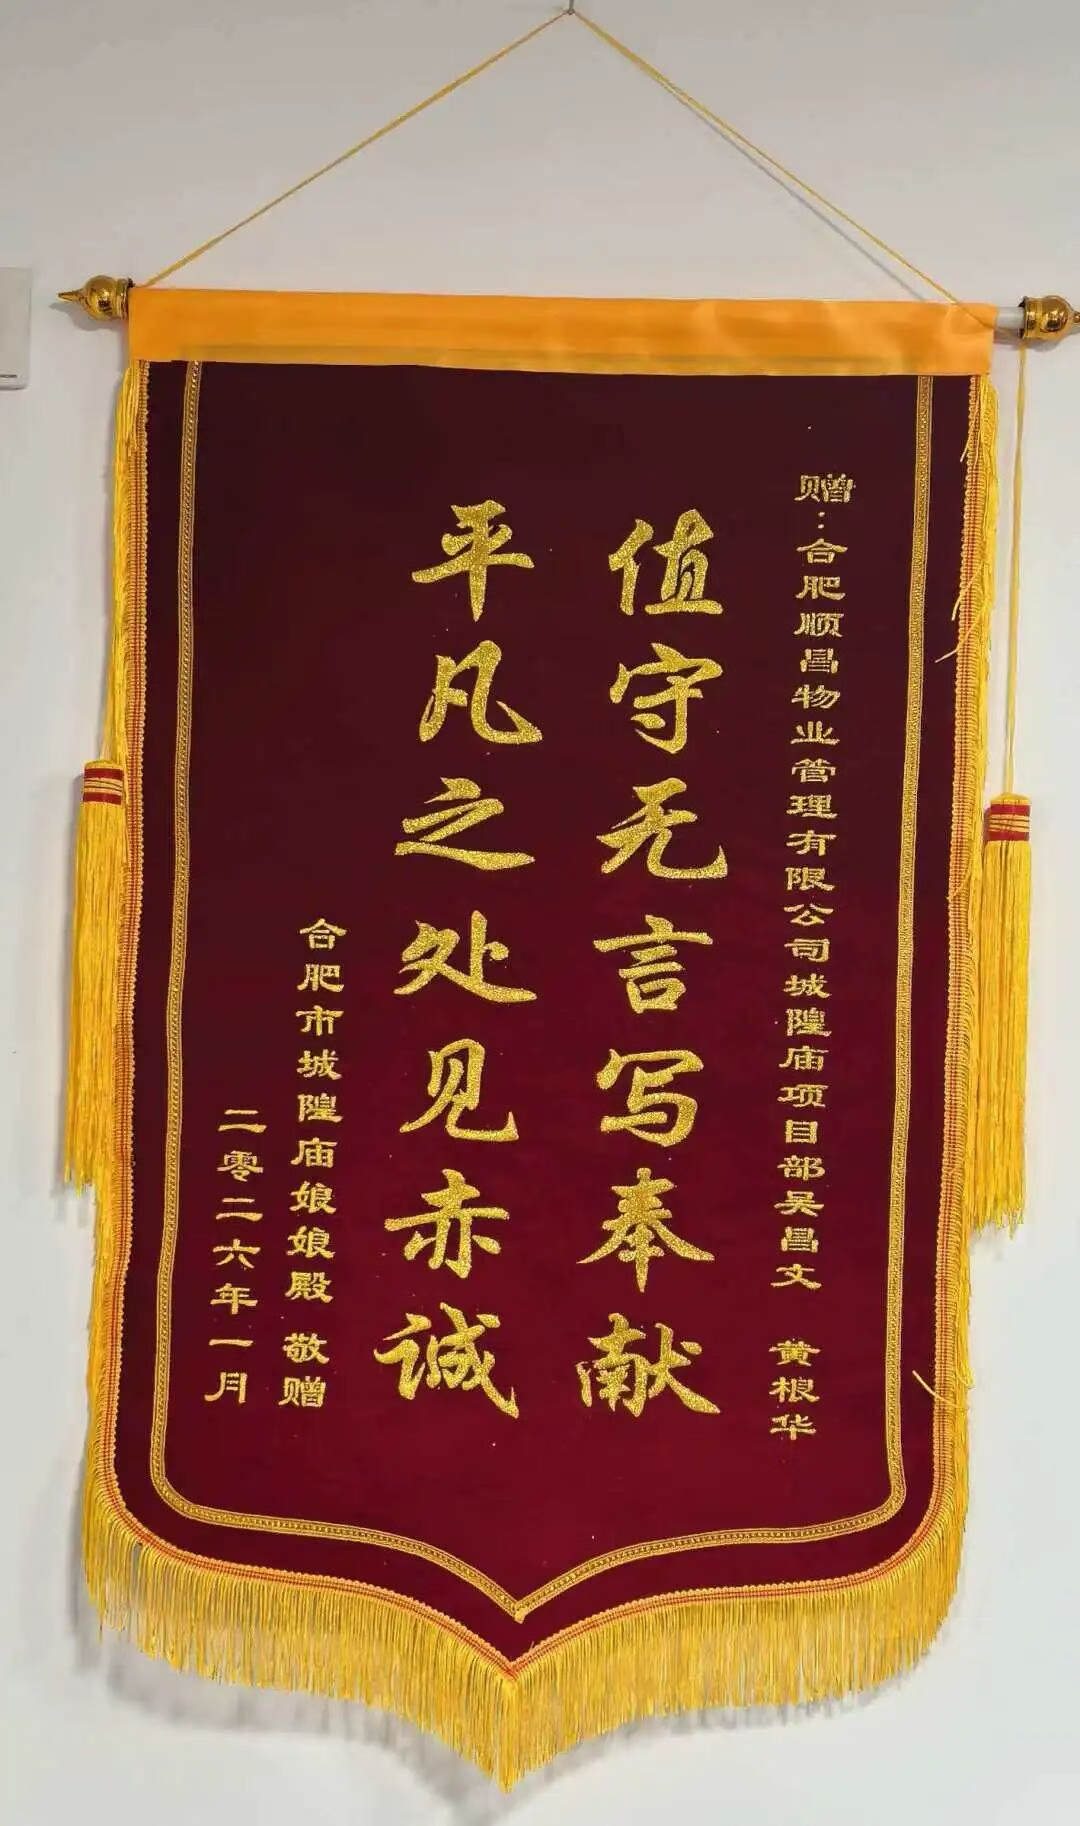 赠：合肥顺昌物业管理有限公司城隍庙项目部吴昌文 黄根华
值守无言写奉献
平凡之处见赤诚
合肥市城隍庙娘娘殿 敬赠
二零二六年一月